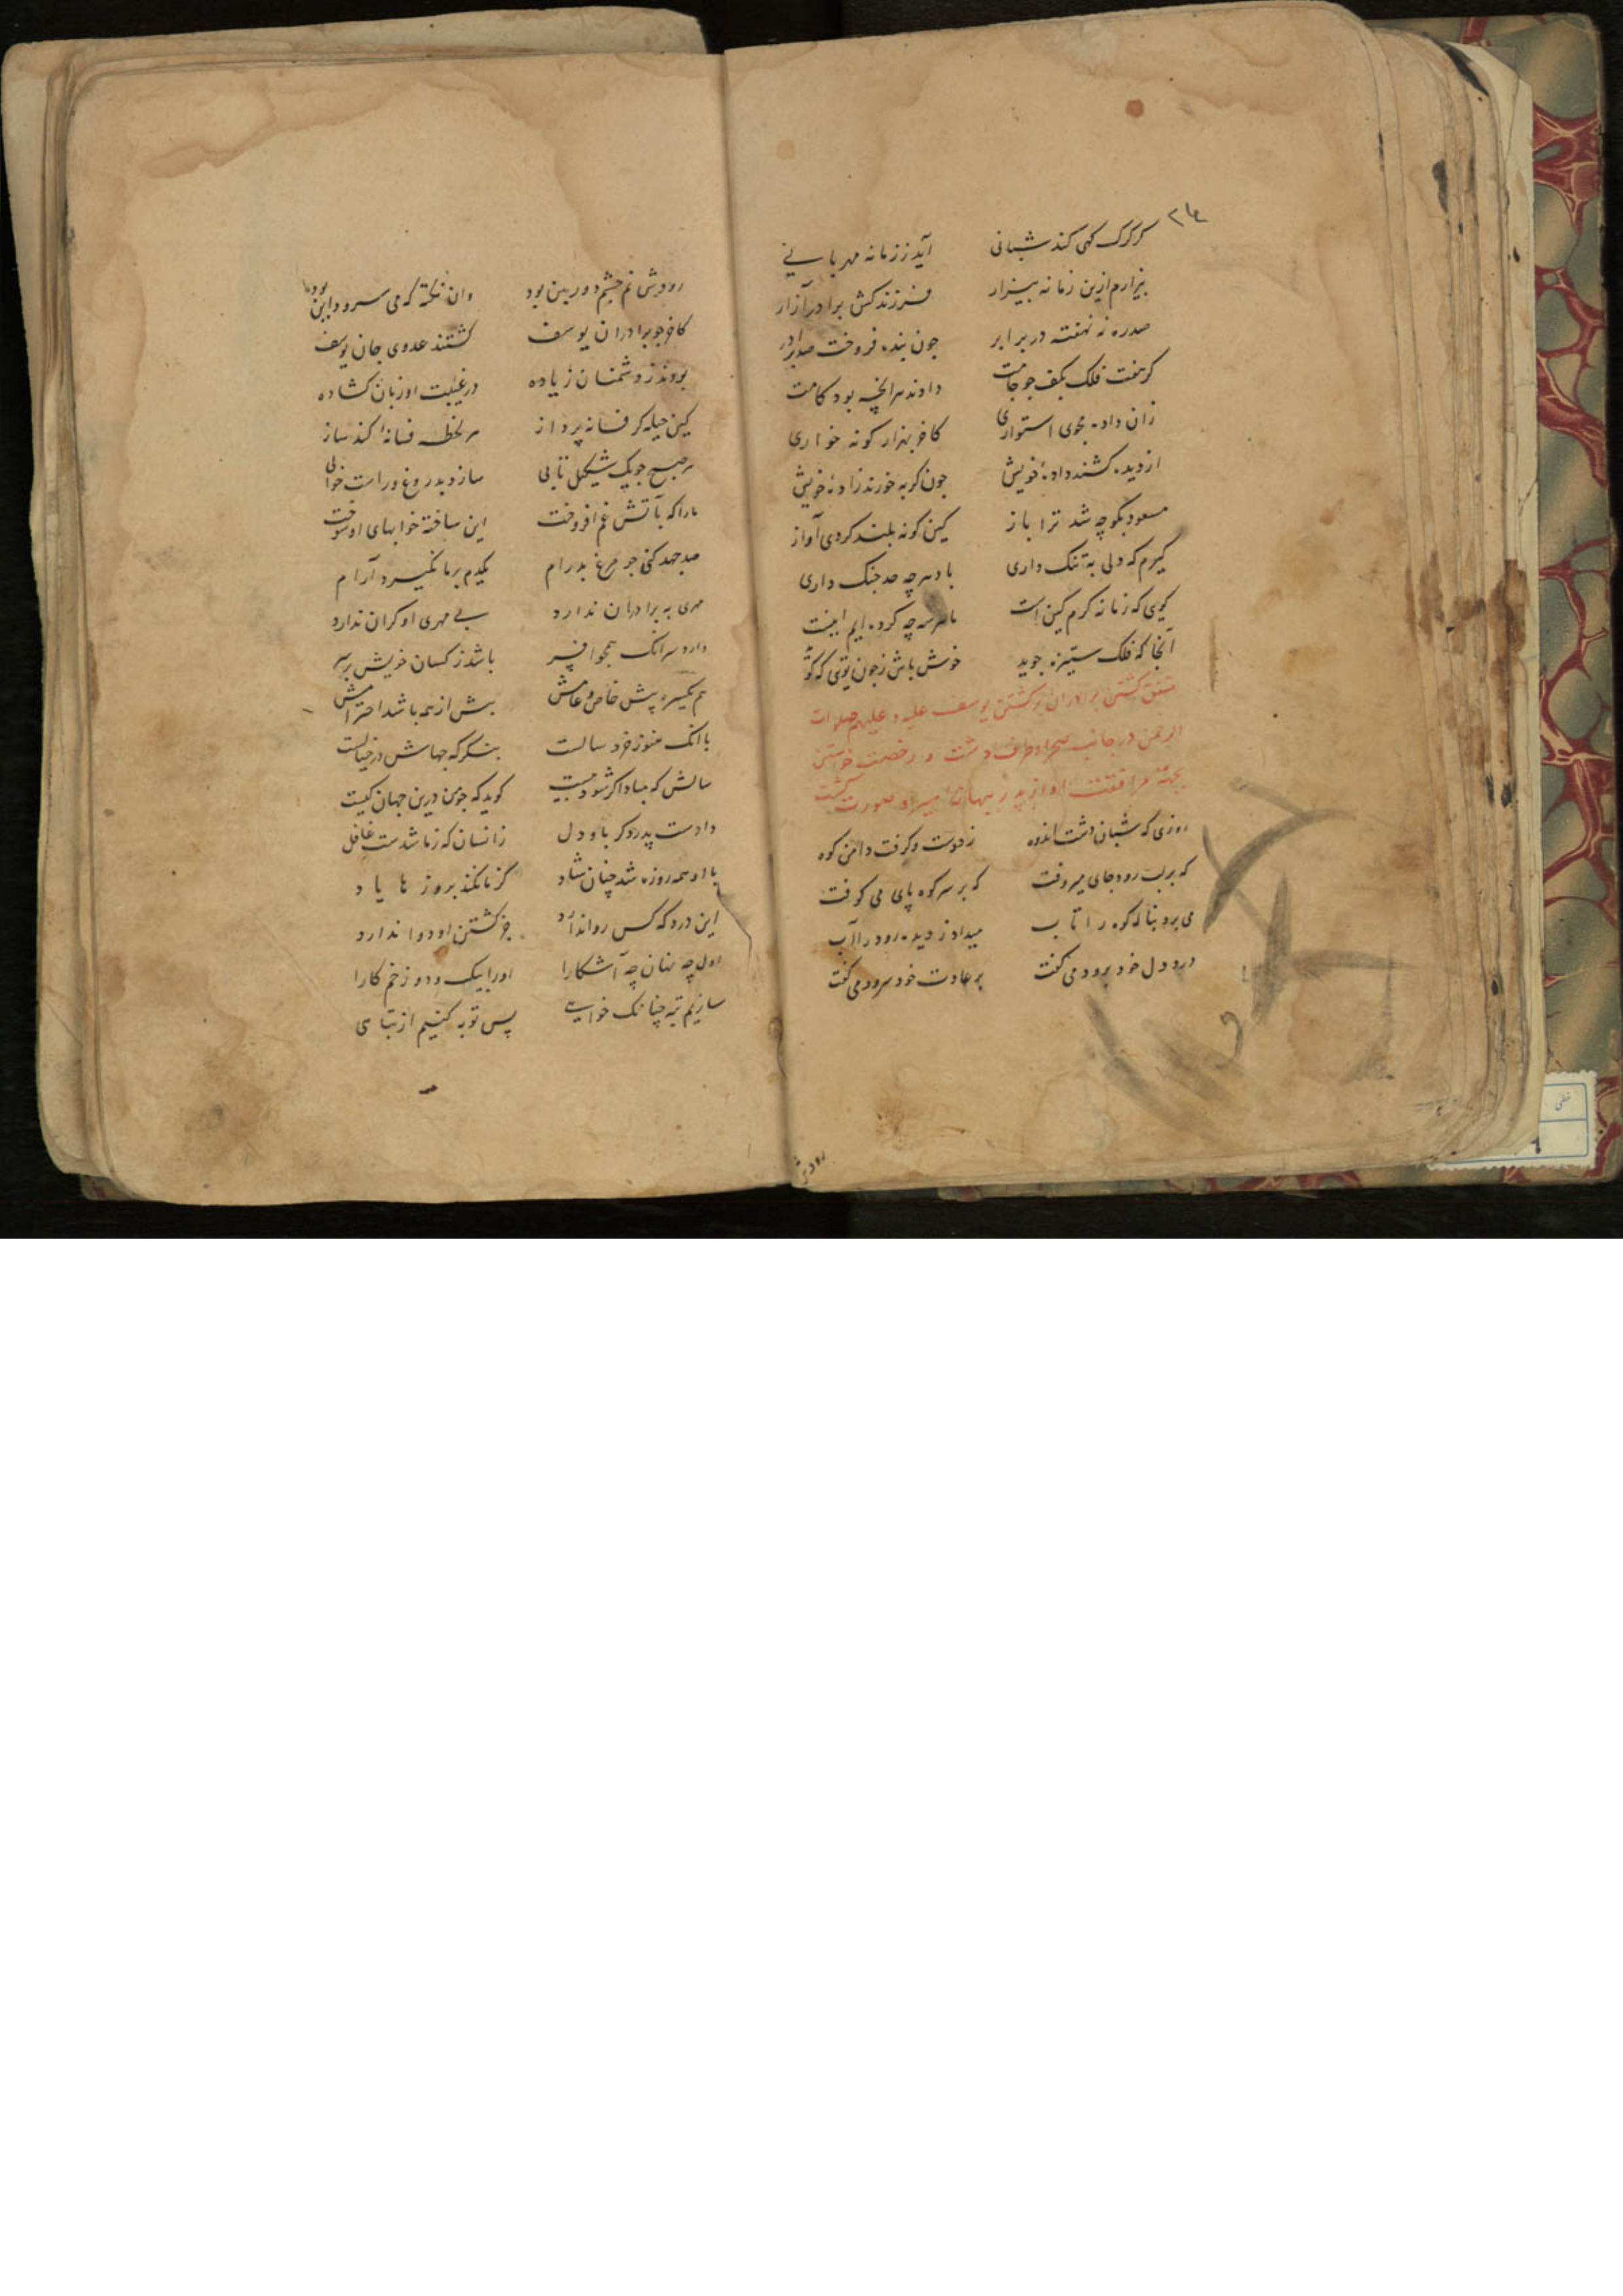 ۲۴
گر گرگ گهی کند شبانی آید ز زمانه مهربانی
بیزارم ازین زمانه بیزار فرزندکش برادرآزار
صدره نه نهفته در برابر چون بنده فروخت صد برادر
گر هفت فلک بکف چو جامت دادند هر آنچه بود کامت
زان داده مجوی استواری کاخر بهزار کونه خواری
از دیده کشند داده خویش چون کربه خورند زاده خویش
مسعود بکو چه شد ترا باز کین کونه بلند کردی آواز
کیرم که دلی به تنک داری با دهر چه حد جنک داری
کویی که زمانه کرم کین است با هر که چه کرده ایم اینست
آنجا که فلک ستیزه جوید خوش باش
متفق کشتن برادران بر کشتن یوسف علیه و علیهم صلوات
الرحمن در جانب صحرا و طرف دشت و رخصت خواستن
بجهة مرافقت او از پدر
روزی که شبان دشت اندوه ز دوست و کرفت دامن کوه
که بر لب رود جای میرفت که بر سر کوه پای می کوفت
می برد بناله کوه را تاب میداد ز دیده رود را آب
درد دل خود برود می کفت بر عادت خود سرود می کفت
رودش
رودش نم چشم دوربین بود وان نکته که می سرود این بود
کاخر چو برادران یوسف کشتند عدوی جان یوسف
بودند ز دشمنان زیاده در غیبت او زبان کشاده
کین حیله کر فسانه پرداز هر لحظه فسانه کند ساز
هر صبح چو یک شکل تابی سازد بدروغ و راست خوابی
ما را که بآتش غم افروخت این ساخته خوابهای او سوخت
صد جهد کنی چو مرغ بدرام یکدم بر ما نکیرد آرام
مهری به برادران ندارد بی مهری او کران ندارد
دارد سر آنک همچو افسر باشد ز کسان خویش بر سر
هم یکسره پیش خاص و عامش بیش از همه باشد احترامش
با آنک هنوز خرد سالست بنکر که جهاش در خیالست
سالش که مبادا اکر شود بیست کوید که چو من درین جهان کیست
دادست پدر دکر باو دل زانسان که ز ما شدست غافل
با او همه روزه شد چنان شاد کز ما نکند بروزها یاد
این درد که کس روا ندارد جز کشتن او دوا ندارد
اول چه نهان چه آشکارا او را بیک و دو زخم کارا
سازیم تبه چنانک خواهی پس توبه کنیم از تباهی